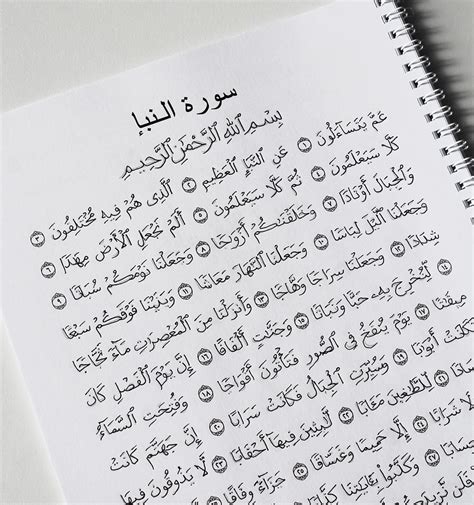 سورة النبإ
بِسْمِ ٱللَّهِ ٱلرَّحْمَٰنِ ٱلرَّحِيمِ
عَمَّ يَتَسَآءَلُونَ ١ عَنِ ٱلنَّبَإِ ٱلْعَظِيمِ ٢ ٱلَّذِى هُمْ فِيهِ مُخْتَلِفُونَ ٣
كَلَّا سَيَعْلَمُونَ ٤ ثُمَّ كَلَّا سَيَعْلَمُونَ ٥ أَلَمْ نَجْعَلِ ٱلْأَرْضَ مِهَٰدًا ٦
وَٱلْجِبَالَ أَوْتَادًا ٧ وَخَلَقْنَٰكُمْ أَزْوَٰجًا ٨ وَجَعَلْنَا نَوْمَكُمْ سُبَاتًا ٩
وَجَعَلْنَا ٱلَّيْلَ لِبَاسًا ١٠ وَجَعَلْنَا ٱلنَّهَارَ مَعَاشًا ١١ وَبَنَيْنَا فَوْقَكُمْ سَبْعًا
شِدَادًا ١٢ وَجَعَلْنَا سِرَاجًا وَهَّاجًا ١٣ وَأَنزَلْنَا مِنَ ٱلْمُعْصِرَٰتِ مَآءً ثَجَّاجًا ١٤
لِّنُخْرِجَ بِهِۦ حَبًّا وَنَبَاتًا ١٥ وَجَنَّٰتٍ أَلْفَافًا ١٦ إِنَّ يَوْمَ ٱلْفَصْلِ كَانَ
مِيقَٰتًا ١٧ يَوْمَ يُنفَخُ فِى ٱلصُّورِ فَتَأْتُونَ أَفْوَاجًا ١٨ وَفُتِحَتِ ٱلسَّمَآءُ
فَكَانَتْ أَبْوَٰبًا ١٩ وَسُيِّرَتِ ٱلْجِبَالُ فَكَانَتْ سَرَابًا ٢٠ إِنَّ جَهَنَّمَ كَانَتْ
لِّلطَّٰغِينَ مَـَٔابًا ٢٢ لَّٰبِثِينَ فِيهَآ أَحْقَابًا ٢٣ لَّا يَذُوقُونَ فِيهَا
وَلَا شَرَابًا ٢٤ إِلَّا حَمِيمًا وَغَسَّاقًا ٢٥ جَزَآءً وِفَاقًا ٢٦
وَكَذَّبُوا۟ بِـَٔايَٰتِنَا